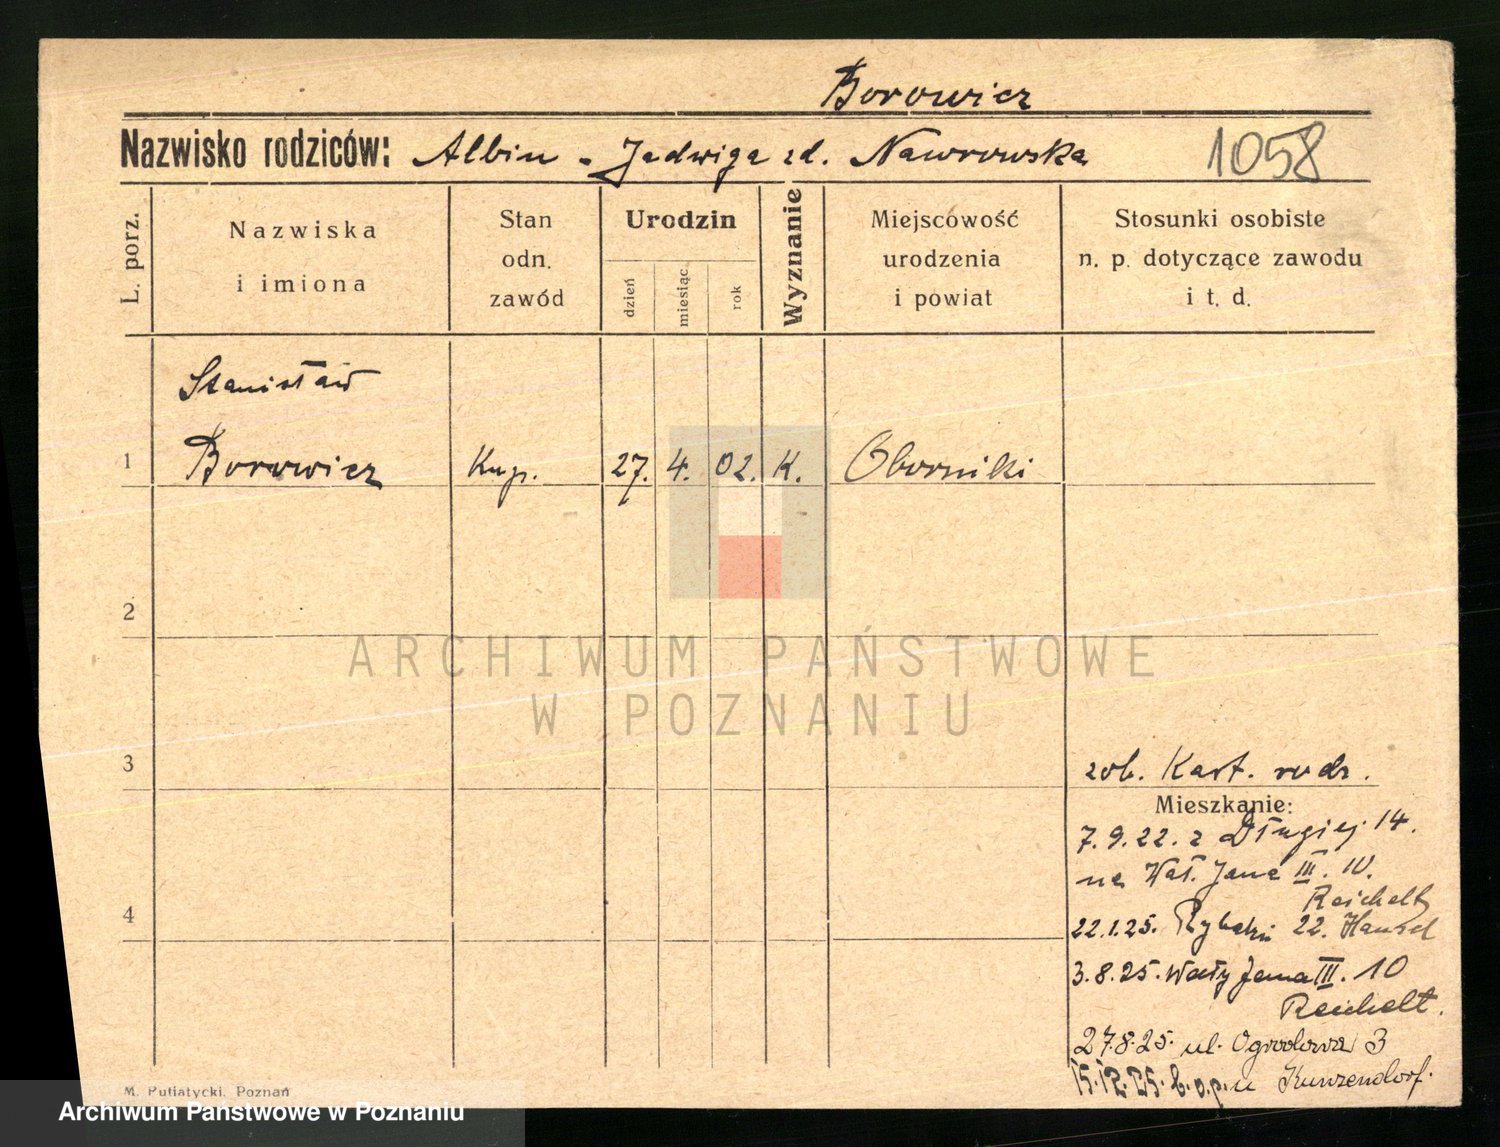 Borowicz
Nazwisko rodziców: Albin - Jadwiga zd. Nawrowska 1058
L. porz.
Nazwiska
i imiona
Stan
odn.
zawód
Urodzin
dzień
miesiąc.
rok
Wyznanie
Miejscowość
urodzenia
i powiat
Stosunki osobiste
n. p. dotyczące zawodu
i t. d.
Stanisław
1 Borowicz Kup. 27. 4. 02. K. Oborniki
2
ARCHIWUM PAŃSTWOWE
W POZNANIU
3
zob. Kart. rodz.
Mieszkanie:
7.9.22. z Długiej 14.
na Wał. Jana III. 10.
Reichelt
4
22.1.25. Rybaki 22.
3.8.25. Wały Jana III. 10
Reichelt.
27.8.25. ul. Ogrodowa 3
15.12.25. b.o.p. u Kunzendorf.
M. Putiatycki, Poznań
Archiwum Państwowe w Poznaniu